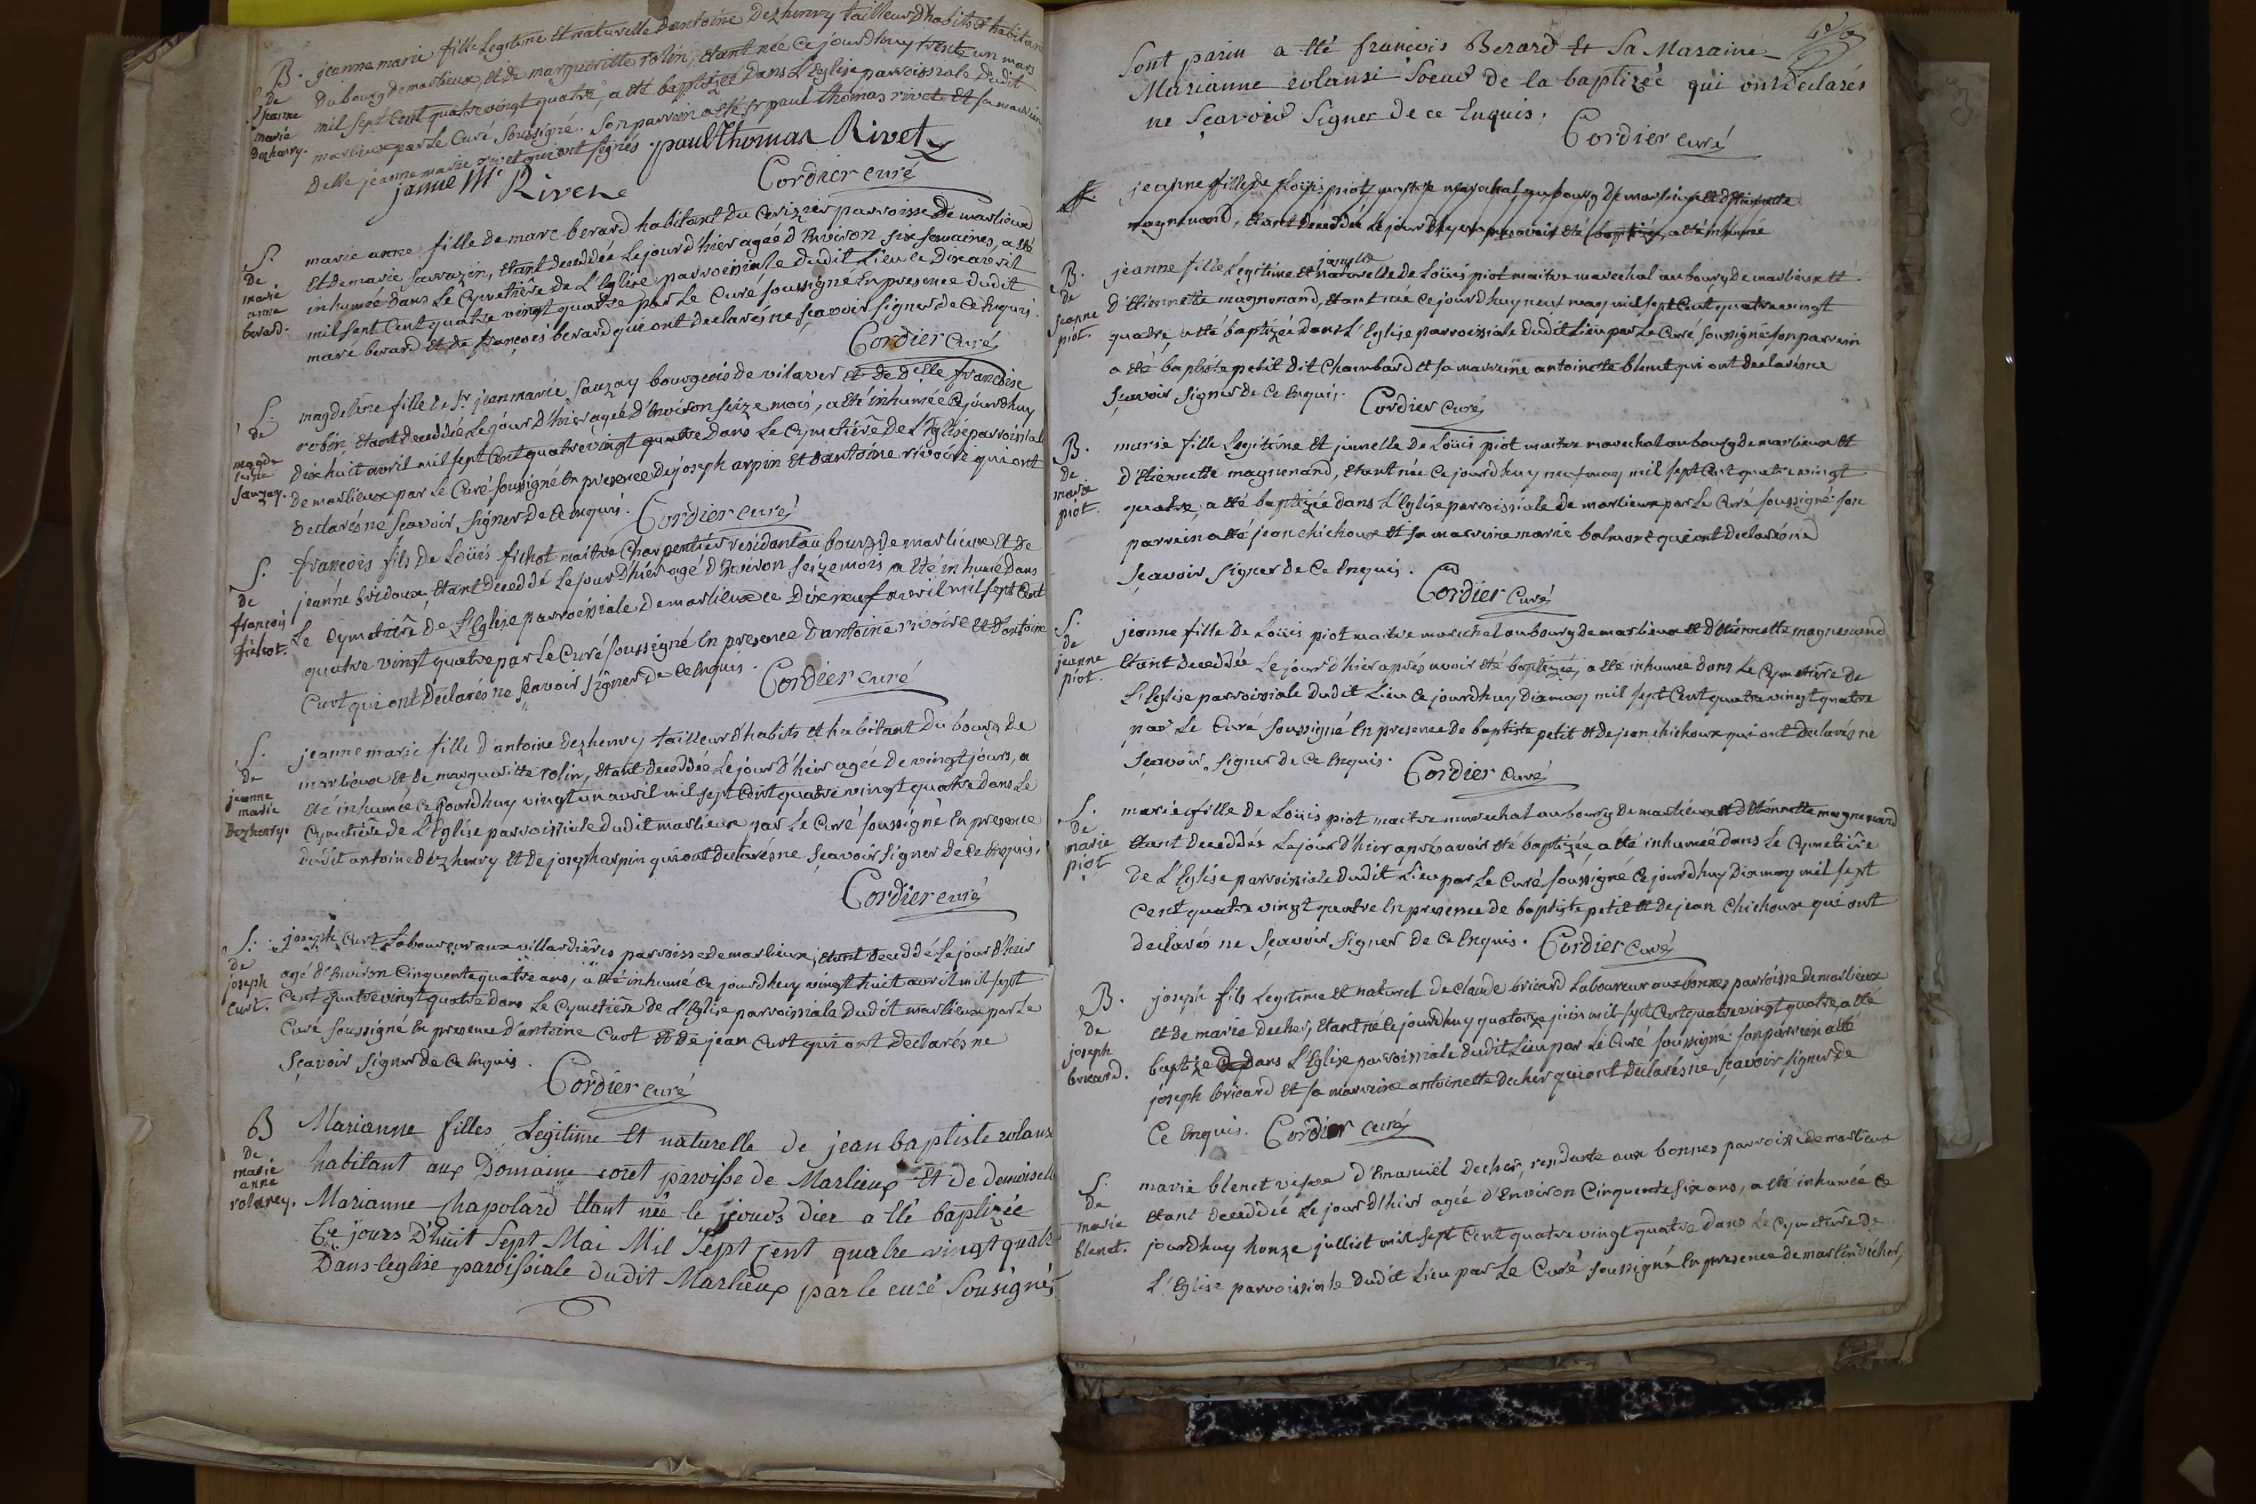 B. jeanne marie fille Legitime et naturelle d'antoine Dezhenry tailleur d'habits et habitant
de jeanne marie Dezhenry.
du bourg de marlieux, et de margueritte rolin, etant née ce jourdhuy trente un mars
mil sept Cent quatre vingt quatre, a eté baptizée dans L'Eglise parroissiale dudit
marlieux par Le Curé soussigné. son parrein a eté sr paul thomas rivet et sa marreine
delle jeanne marie rivet qui ont signés. paul thomas Rivet
janne M. Rivet Cordier curé
S. de marie anne berard.
marie anne fille de marc berard habitant du Cerizier parroisse de marlieux
et de marie sarrazin, etant deceddée Le jour d'hier agée d'Environ six semaines, a eté
inhumée dans Le Cymetiere de L'Eglise parroissiale dudit Lieu le dix avril
mil sept Cent quatre vingt quatre par Le Curé soussigné En presence dudit
marc berard et de françois berard qui ont declarés ne sçavoir signer de Ce Enquis.
Cordier Curé
S. de magdeleine sauzay.
magdeleine fille de sr jean marie sauzay bourgeois de vilaver et de delle françoise
robin, etant deceddée Le jour d'hier agée d'Environ seize mois, a eté inhumée Ce jourdhuy
dix huit avril mil sept Cent quatre vingt quatre dans Le Cymetiere de L'Eglise parroissial
de marlieux par Le Curé soussigné En presence de joseph arpin et d'antoine rivoire qui ont
declarés ne sçavoir signer de Ce enquis. Cordier curé
S. de françois fichot.
françois fils de Loüis fichot maitre Charpentier residant au bourg de marlieux et de
jeanne bridoux, etant deceddé Le jour d'hier agé d'Environ seize mois, a eté inhumé dans
Le Cymetiere de L'Eglise parroissiale de marlieux ce dix neuf avril mil sept Cent
quatre vingt quatre par Le Curé soussigné En presence d'antoine rivoire et d'antoine
Curt qui ont declarés ne sçavoir signer de Ce Enquis. Cordier curé
S. de jeanne marie Dezhenry.
jeanne marie fille d'antoine dezhenry tailleur d'habits et habitant du bourg de
marlieux et de margueritte rolin, etant deceddée Le jour d'hier agée de vingt jours, a
eté inhumée Ce jourdhuy vingt un avril mil sept Cent quatre vingt quatre dans Le
Cymetiere de L'Eglise parroissiale dudit marlieux par Le Curé soussigné En presence
dudit antoine dezhenry et de joseph arpin qui ont declarés ne sçavoir signer de Ce Enquis.
Cordier curé
S. de joseph Curt.
joseph Curt Laboureur aux villardieres parroisse de marlieux, etant deceddé Le jour d'hier
agé d'Environ Cinquente quatre ans, a eté inhumé Ce jourdhuy vingt huit avril mil sept
Cent quatre vingt quatre dans Le Cymetiere de L'Eglise parroissiale dudit marlieux par Le
Curé soussigné En presence d'antoine Curt et de jean Curt qui ont declarés ne
sçavoir signer de Ce Enquis.
Cordier curé
B de marie anne rolancy.
Marianne filles Legitime Et naturelle de jean baptiste rolans
habitant aux Domaine coret paroisse de Marlieux Et de demoiselle
Marianne Chapolard Etant née le jours dier a Eté baptizée
Ce jours D'huit Sept Mai Mil Sept Cent quatre vingt quatre
Dans leglise paroissiale dudit Marlieux par le curé Sousignés
Sont parin a Eté francois Berard Et Sa Maraine
Marianne rolansi Soeur de la baptizeé qui ont declarés
ne Sçavoir Signer de ce Enquis.
Cordier curé
jeanne fille de Loüis piot maitre marechal au bourg de marlieux et d'Etiennette
magnenand, etant deceddée Le jour d'hyer apres avoir eté baptizée, a eté inhumée
B. de jeanne piot.
jumelle
jeanne fille Legitime et naturelle de Loüis piot maitre marechal au bourg de marlieux et
d'Etiennette magnenand, etant née ce jourdhuy neuf may mil sept Cent quatre vingt
quatre, a eté baptizée dans L'Eglise parroissiale dudit Lieu par Le Curé soussigné son parrein
a eté baptiste petit dit Chambard et sa marreine antoinette blenet qui ont declarés ne
sçavoir signer de Ce Enquis. Cordier curé
B. de marie piot.
marie fille Legitime et jumelle de Loüis piot maitre marechal au bourg de marlieux et
d'Etiennette magnenand, etant née Ce jourdhuy neuf may mil sept Cent quatre vingt
quatre, a eté baptizée dans L'Eglise parroissiale de marlieux par Le Curé soussigné son
parrein a eté jean chichoux et sa marreine marie balmont qui ont declarés ne
sçavoir signer de Ce Enquis. Cordier Curé
S. de jeanne piot.
jeanne fille de Loüis piot maitre marechal au bourg de marlieux et d'Etiennette magnenand
etant deceddée Le jour d'hier aprés avoir eté baptizée, a eté inhumée dans Le Cymetiere de
L'Eglise parroissiale dudit Lieu Ce jourdhuy dix may mil sept Cent quatre vingt quatre
par Le Curé soussigné En presence de baptiste petit et de jean chichoux qui ont declarés ne
sçavoir signer de Ce Enquis. Cordier curé
S. de marie piot
marie fille de Loüis piot maitre marechal au bourg de marlieux et d'Etiennette magnenand
etant deceddée Le jour d'hier aprés avoir eté baptizée, a eté inhumée dans Le Cymetiere
de L'Eglise parroissiale dudit Lieu par Le Curé soussigné Ce jourdhuy dix may mil sept
Cent quatre vingt quatre En presence de baptiste petit et de jean chichoux qui ont
declarés ne sçavoir signer de Ce Enquis. Cordier curé
B. de joseph bricard.
joseph fils Legitime et naturel de claude bricard Laboureur aux bonnes parroisse de marlieux
et de marie decher, etant né Ce jourdhuy quatorze juin mil sept Cent quatre vingt quatre, a eté
baptizé dans L'Eglise parroissiale dudit Lieu par Le Curé soussigné son parrein a eté
joseph bricard et sa marreine antoinette decher qui ont declarés ne sçavoir signer de
Ce Enquis. Cordier curé
S. de marie blenet.
marie blenet veuve d'Emanuël decher, rendante aux bonnes parroisse de marlieux
etant deceddée Le jour d'hier agée d'Environ Cinquente six ans, a eté inhumée Ce
jourdhuy honze jullict mil sept Cent quatre vingt quatre dans Le Cymetiere de
L'Eglise parroissiale dudit Lieu par Le Curé soussigné En presence de martin decher,